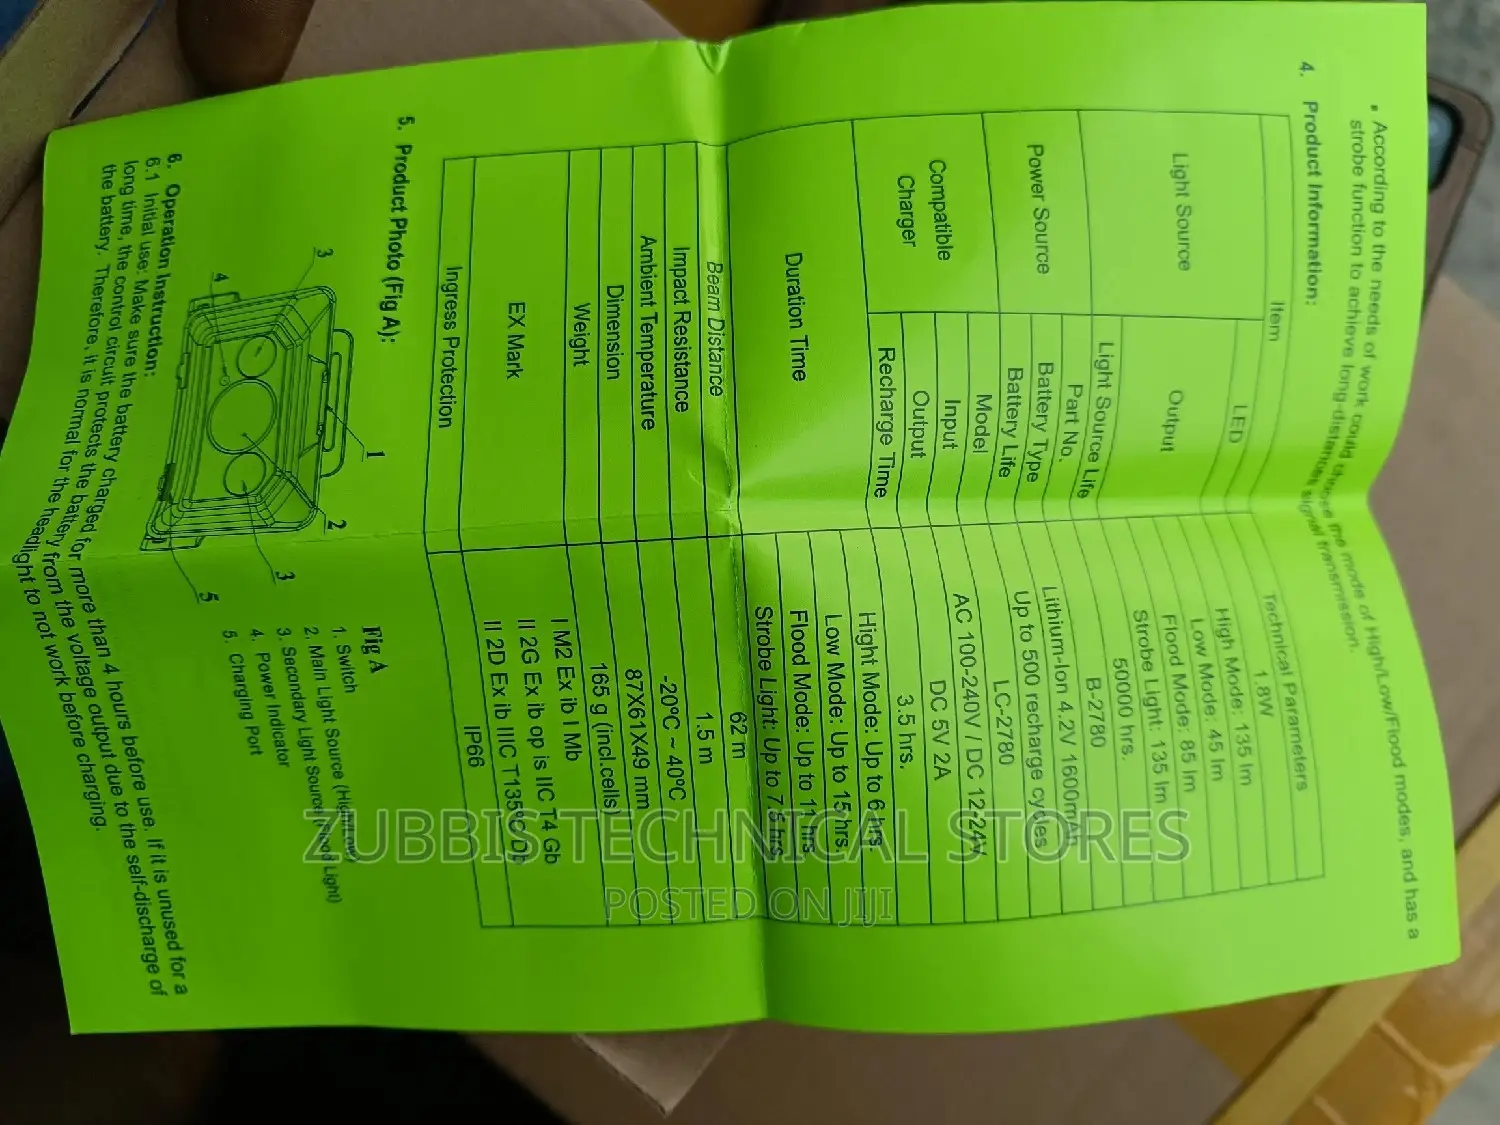 ▪ According to the needs of work could choose the mode of High/Low/Flood modes, and has a
strobe function to achieve long-distances signal transmission.
4. Product Information:
Item Technical Parameters
Light Source LED 1.8W
Output High Mode: 135 lm
Low Mode: 45 lm
Flood Mode: 85 lm
Strobe Light: 135 lm
Light Source Life 50000 hrs.
Power Source Part No. B-2780
Battery Type Lithium-Ion 4.2V 1600mAh
Battery Life Up to 500 recharge cycles
Compatible
Charger
Model LC-2780
Input AC 100-240V / DC 12-24V
Output DC 5V 2A
Recharge Time 3.5 hrs.
Duration Time Hight Mode: Up to 6 hrs.
Low Mode: Up to 15 hrs.
Flood Mode: Up to 11 hrs.
Strobe Light: Up to 7.5 hrs.
Beam Distance 62 m
Impact Resistance 1.5 m
Ambient Temperature -20ºC ~ 40ºC
Dimension 87X61X49 mm
Weight 165 g (incl.cells)
EX Mark I M2 Ex ib I Mb
II 2G Ex ib op is IIC T4 Gb
II 2D Ex ib IIIC T135ºC Db
Ingress Protection IP66
5. Product Photo (Fig A):
1
2
3
3
4
5
Fig A
1. Switch
2. Main Light Source (High/Low)
3. Secondary Light Source (Flood Light)
4. Power Indicator
5. Charging Port
6. Operation Instruction:
6.1 Initial use: Make sure the battery charged for more than 4 hours before use. If it is unused for a
long time, the control circuit protects the battery from the voltage output due to the self-discharge of
the battery. Therefore, it is normal for the headlight to not work before charging.
ZUBBIS TECHNICAL STORES
POSTED ON JIJI